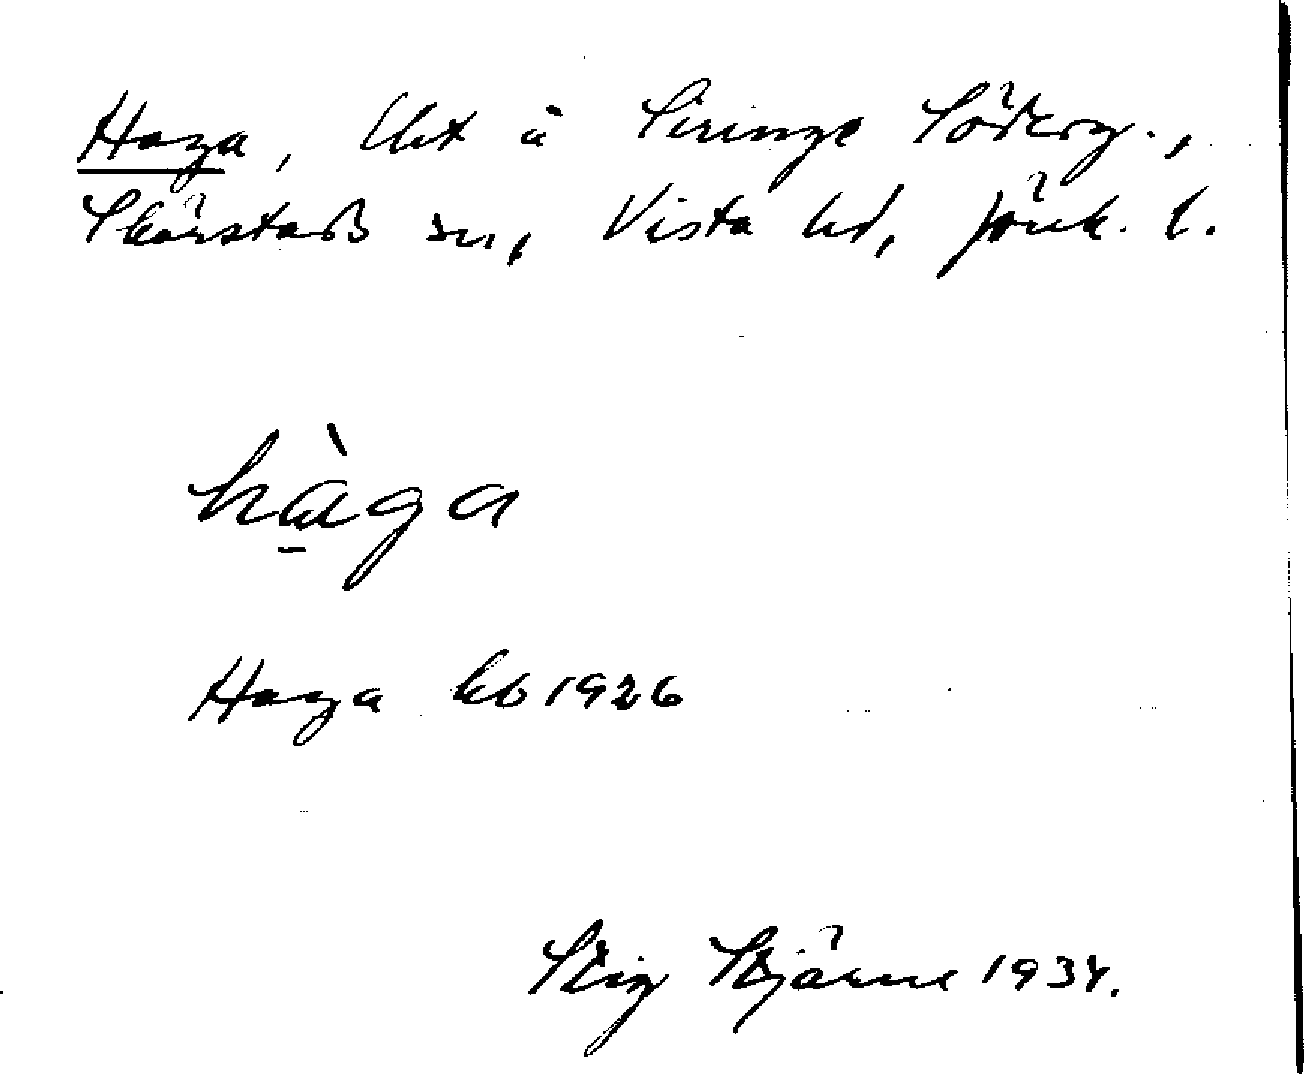 Haga, lht å Siringe Söderg.,
Skärstads sn, Vista hd, Jönk. l.
hàga
Haga kb 1926
Stig Stjärne 1934.